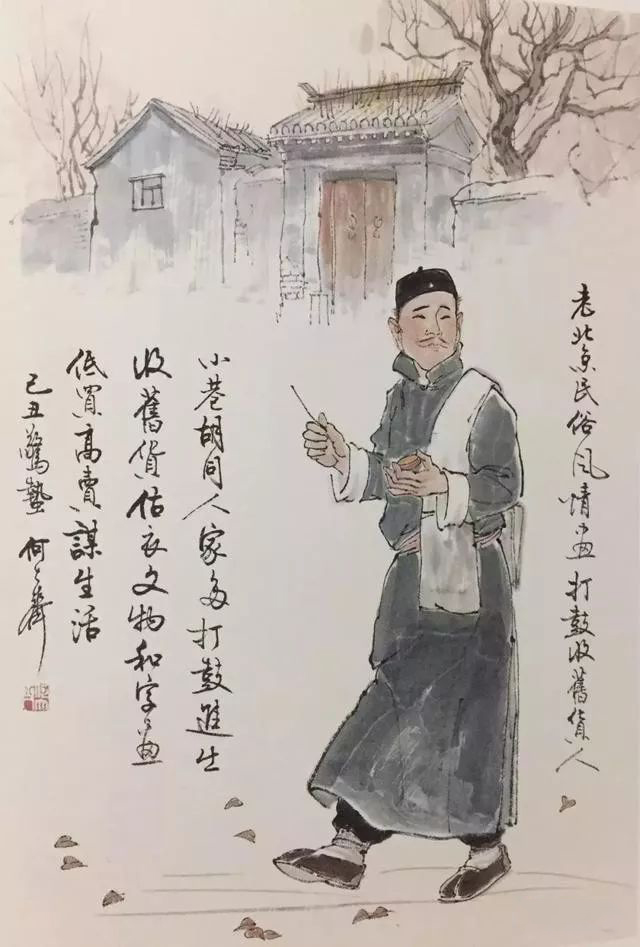 老北京民俗风情画打鼓收舊貨人
小巷胡同人家多打鼓進生
收舊貨估衣文物和字画
低買高賣謀生活
己丑驚蟄 何大齊